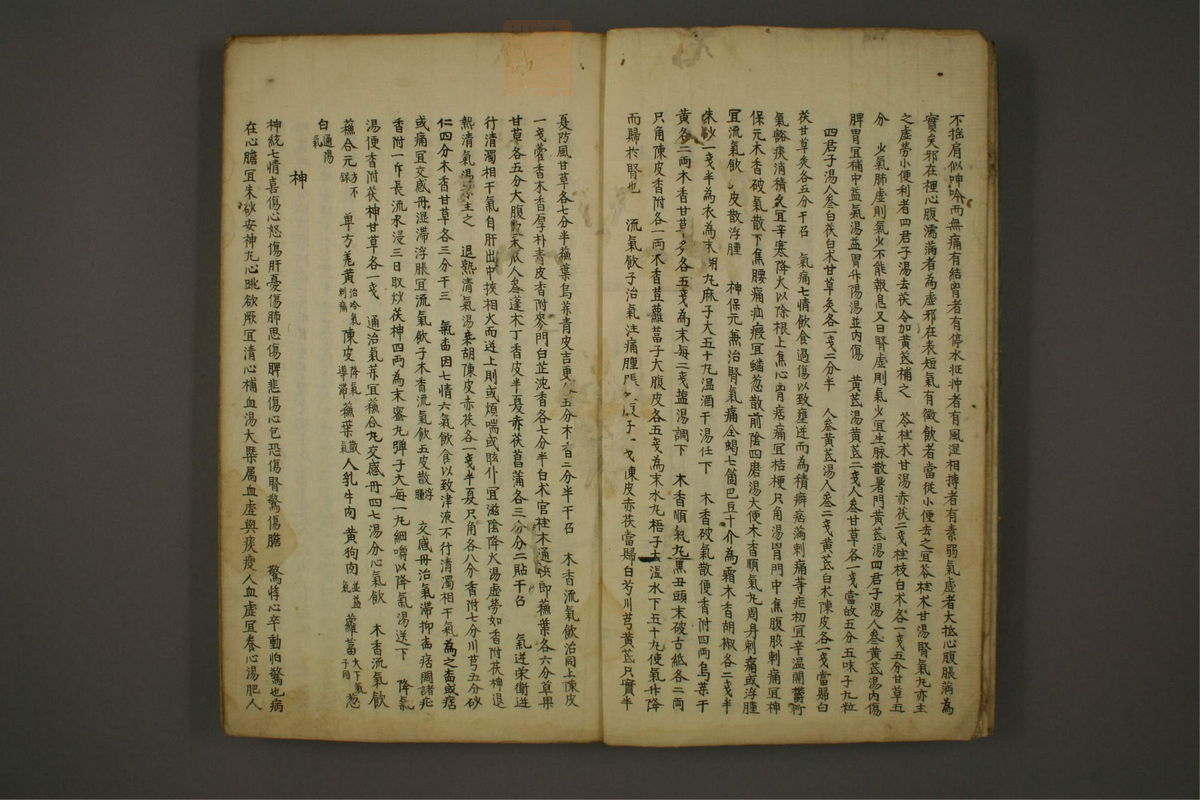 不擡肩似呻吟而無痛有結胃者有停水怔忡者有風湿相摶者有素弱氣虚者大抵心腹脹滿為
實矣邪在裡心腹濡滿者為虚邪在表短氣有微飲者當從小便去之宜苓桂朮甘湯腎氣丸亦主
之虚勞小便利者四君子湯去茯令加黃茋補之 苓桂朮甘湯赤茯二戔桂枝白朮各一戔五分甘草五
分 少氣肺虚則氣少不能報息又曰腎虚則氣少宜生脉散暑門黃茋湯四君子湯人參黃茋湯内傷
脾胃宜補中益氣湯益胃升陽湯並内傷 黃茋湯黃茋二戔人參甘草各一戔當故五分五味子九粒
四君子湯人參白茯白朮甘草灸各一戔二分半 人參黃茋湯人參二戔黃茋白朮陳皮各一戔當歸白
茯甘草灸各五分干召 氣痛七情飲食過傷以致壅逆而為積癖痞滿刺痛等疟初宜辛温開欝行
氣豁痰消積久宜辛寒降火以除根上焦心胃痞痛宜桔梗只角湯胃門中焦腹胲刺痛宜神
保元木香破氣散下焦腰痛疝瘕宜蟠葱散前陰四磨湯大便木香順氣丸周身刺痛或浮腫
宜流氣飲 皮散浮腫 神保元兼治腎氣痛全蝎七箇巴豆十介為霜木香胡椒各二戔半
朱砂一戔半為衣為末 丸麻子大五十九温酒干湯任下 木香破氣散便香附四両烏薬干
黃各二両木香甘草多各五戔為末每二戔塩湯調下 木香順氣丸黒丑頭末破古紙各二両
只角陳皮香附各一両木香荳蘿葍子大腹皮各五戔為末水丸梧子大温水下五十九使氣升降
而歸於腎也 流氣飲子治氣注痛腫脹 陳皮赤茯當歸白芍川芎黃茋只實半
戞防風甘草各七分半蘓葉烏薬青皮吉更 五分木香二分半干召 木香流氣飲治同上陳皮
一戔藿香木香厚朴青皮香附麥門白芷沈香各七分半白朮官桂木通快即蘓葉各六分草果
甘草各五分大腹皮木瓜人參蓬朮丁香皮半戞赤茯菖蒲各三分分二貼干召 氣送荣衛逆
行清濁相干氣自肝出中挾相火而逆上則或煩喘或咳仆宜滋陰降火湯虚勞如香附茯神退
熱清氣湯 主之 退熱清氣湯柴胡陳皮赤茯各一戔半戞只角各八分香附七分川芎五分砂
仁四分木香甘草各三分干三 氣欝因七情六氣飲食以致津液不行清濁相干氣為之欝或痞
或痛宜交感丹湿滞浮脹宜流氣飲子木香流氣飲五皮散浮腫 交感丹治氣滞抑欝痞閟諸疟
香附一斤長流水浸三日取炒茯神四両為末蜜丸彈子大每一丸細嚼以降氣湯送下 降氣
湯便香附茯神甘草各一戔 通治氣荐宜蘓合丸交感丹四七湯分心氣飲 木香流氣飲
蘓合元方不録 単方羗黃治冷氣刺痛 陳皮降氣導滞 蘓葉散氣 人乳牛肉 黃狗肉並益氣 蘿葍大下氣子同 葱
白通陽氣
神
神統七情喜傷心怒傷肝憂傷肺思傷脾悲傷心包恐傷腎驚傷膽 驚悸心卒動怕驚也病
在心膽宜朱砂安神丸心眺欲厥宜清心補血湯大槩属血虚與痰瘦人血虚宜養心湯肥人